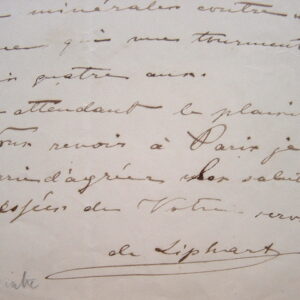 minérales contre
qui me tourment
quatre ans.
attendant le plaisi
Vous revoir à Paris je
d'agréer les salut
de Votre serv
de Liphart